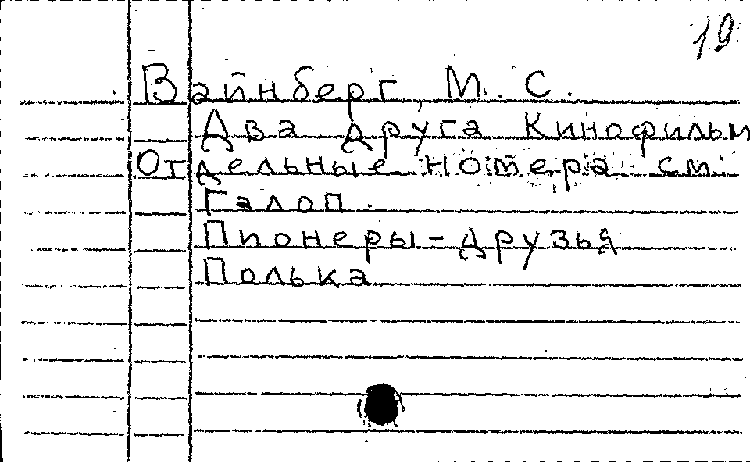 19
Вайнберг, М. С.
Два друга Кинофильм
Отдельные номера см.
Галоп.
Пионеры-друзья
Полька